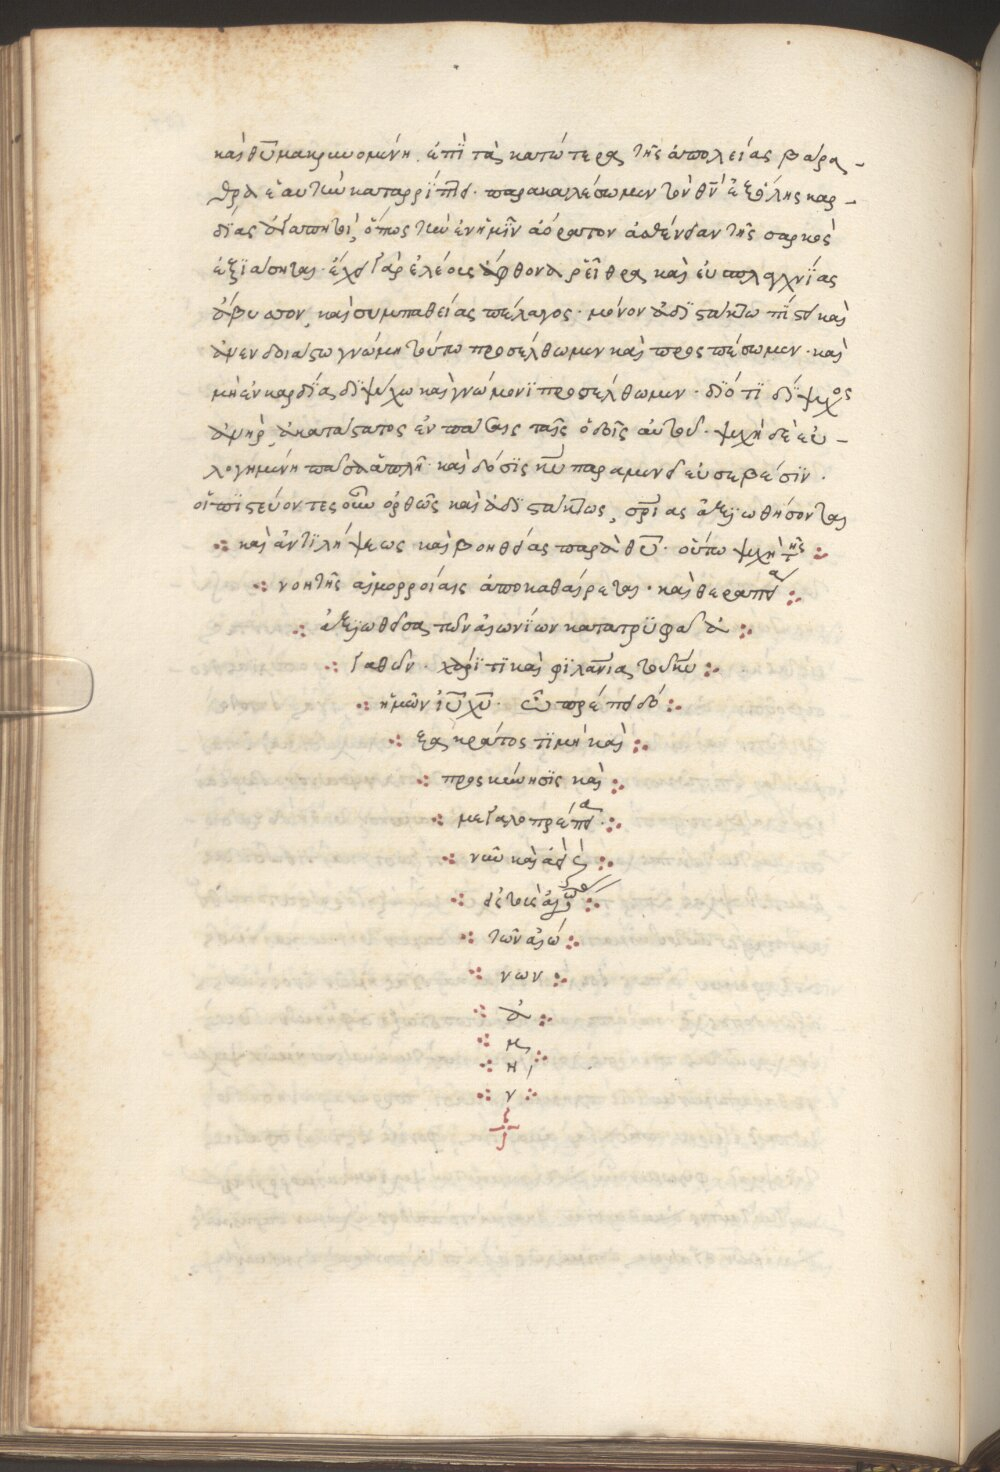 καὶ θῡ μακρυνομένη. ἐπῒ τὰ κατώτερα τῆς ἀπολείας βάρα-
θρα ἑαυτὴν καταρρίπτει. παρακαλέσωμεν τὸν θν̄ ἐξ ὅλης καρ-
δίας ἀγαπητοὶ, ὅπως τὴν ἐν ἡμῖν ἀόρατον ἀσθένειαν τῆς σαρκὸς
ἐξϊάσηται. ἔχει γὰρ ἐλέους ἄφθονα ῥεῖθρα καὶ εὐσπλαγχνΐας
ἄβυσσον, καὶ συμπαθείας πέλαγος. μόνον ἀδϊστάκτω πΐστει καὶ
ἀνενδοιάστω γνώμη τούτω προσέλθωμεν καὶ προσπέσωμεν. καὶ
μὴ ἐν καρδία διψύχω καὶ γνώμονϊ προσέλθωμεν. δϊότϊ δίψυχος
ἀνὴρ, ἀκατάστατος ἐν πάσαις ταῖς ὁδοῖς αὐτοῦ. ψυχὴ δὲ εὐ-
λογημένη πᾶσα ἁπλῆ. καὶ δόσϊς κῡ παραμένει εὐσεβέσϊν.
οἱ πϊστεύοντες οὖν ὀρθῶς καὶ ἀδϊστάκτως, σρΐας ἀξιωθήσονται
καὶ ἀντϊλήψεως καὶ βοηθείας παρὰ θῡ. οὕτω ψυχὴ τῆς
νοητῆς αἱμορροίας ἀποκαθαίρεται. καὶ θεραπεία
ἀξιωθεῖσα, τῶν αἰωνίων κατατρυφᾶ ἀ
γαθῶν. χάρϊτϊ καὶ φϊλανΐα τοῦ κῡ
ἡμῶν ἰῡ χῡ. ὧ πρέπει δό
ξα, κράτος τϊμὴ καὶ
προσκύνησϊς καὶ
μεγαλοπρέπεια
νῦν καὶ ἀεὶ
εἰς τοὺς αἰῶνας
τῶν αἰώ
νων
ἀ
μ
η
ν